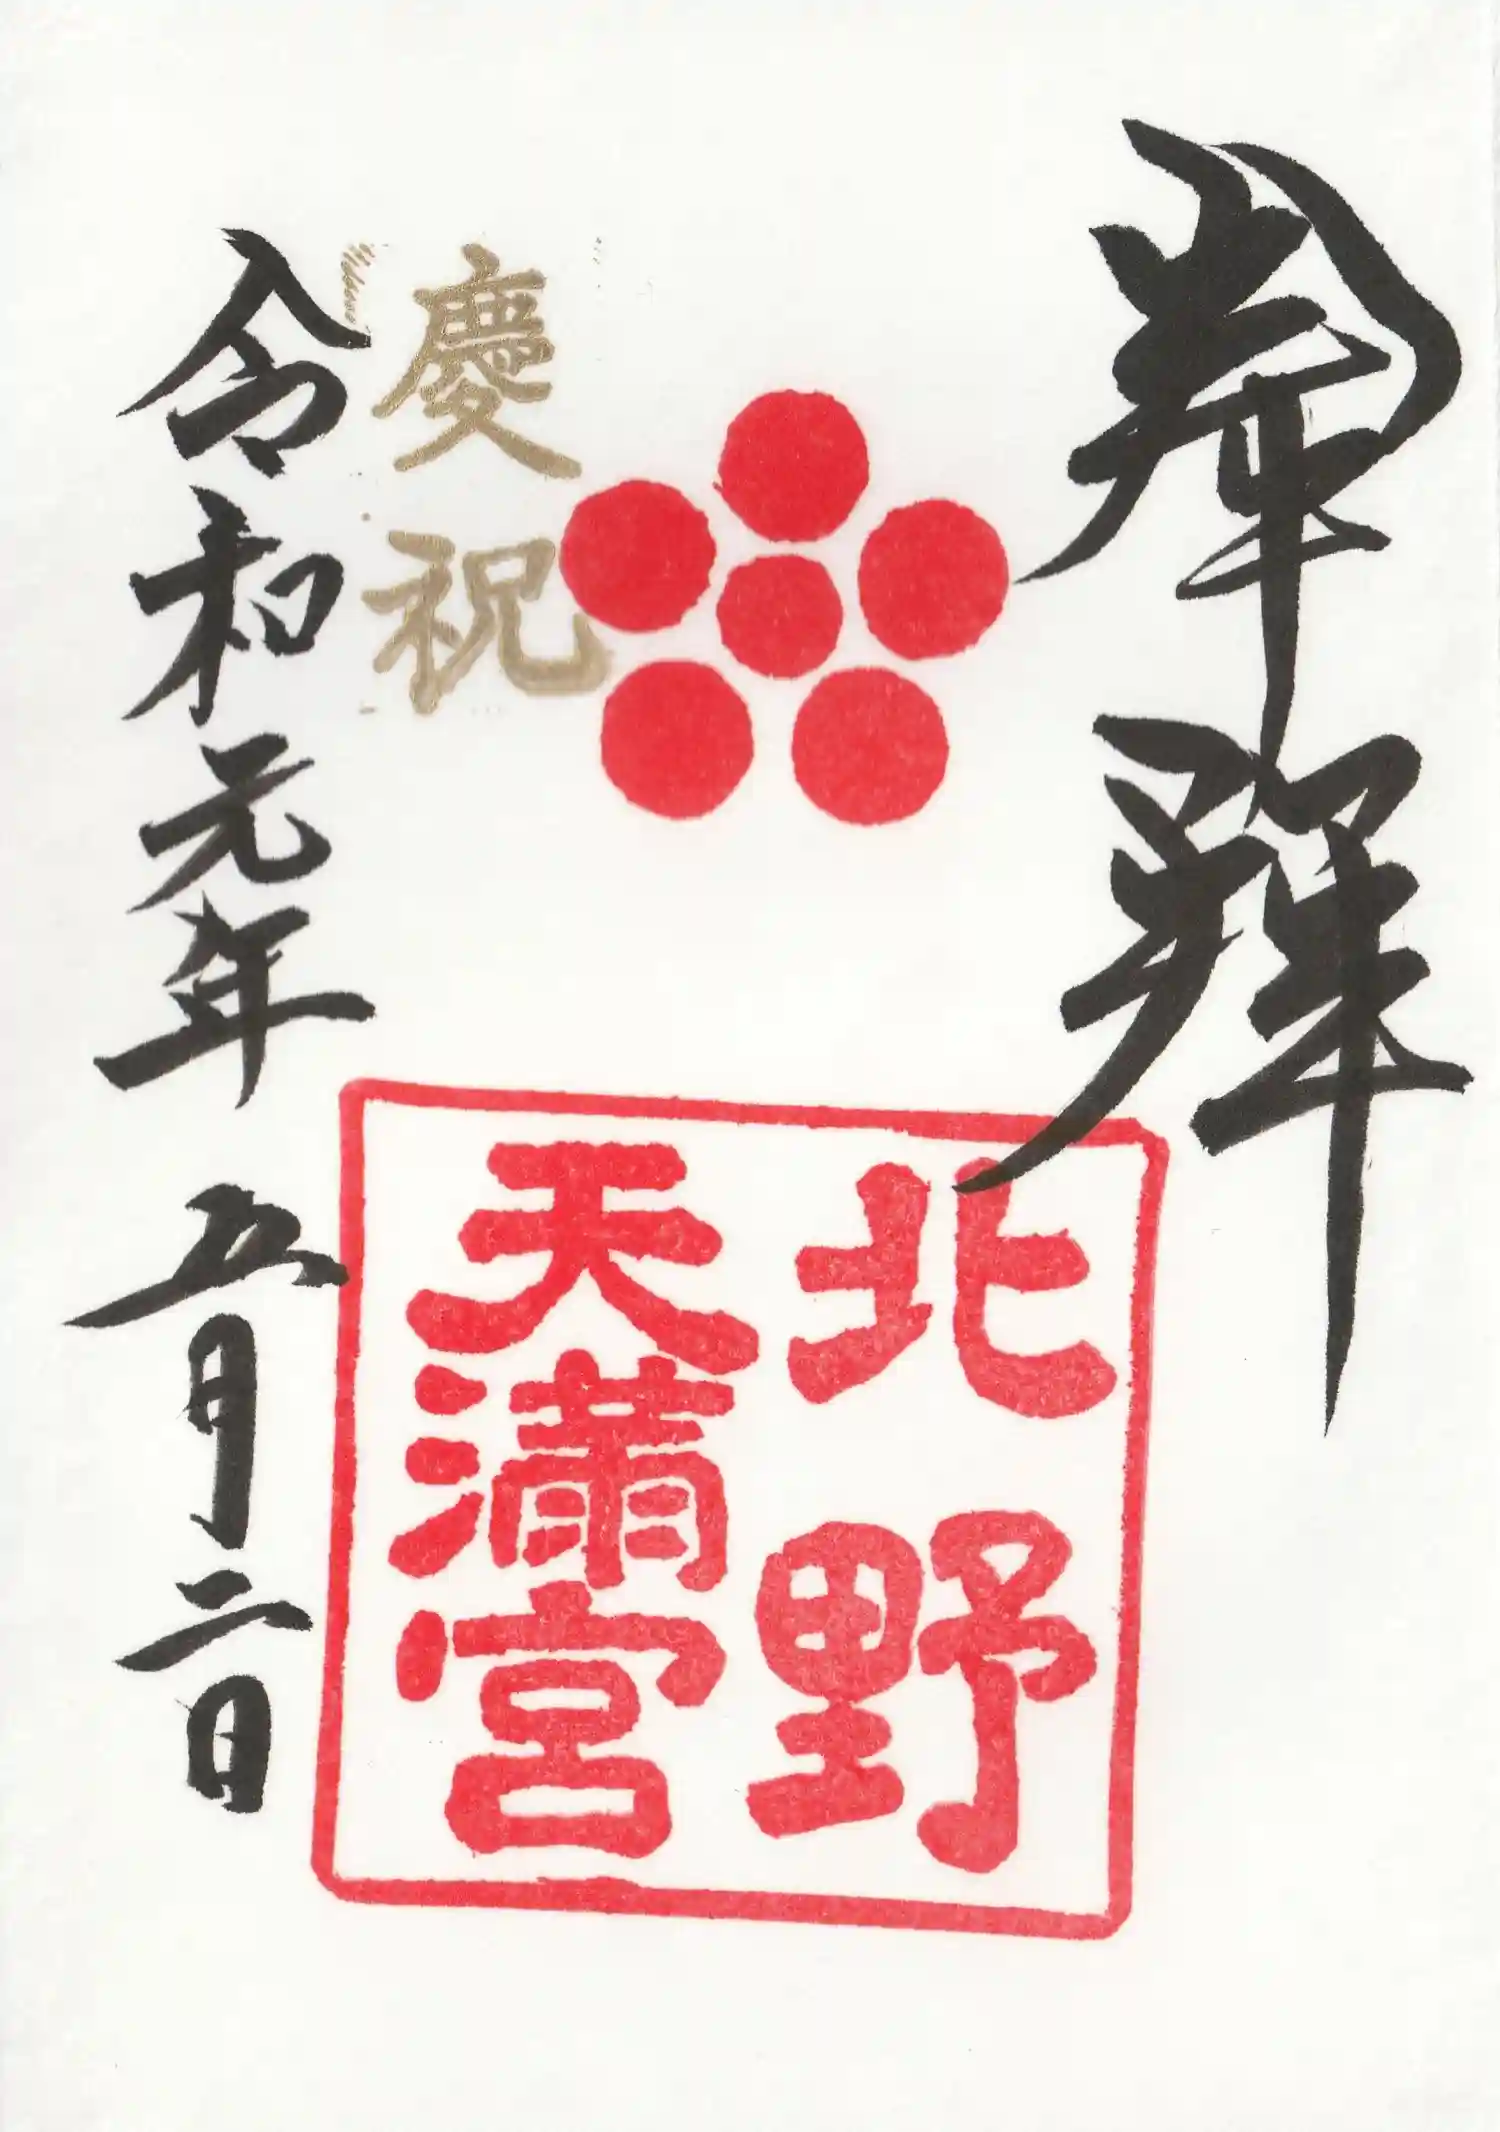 奉拜
北野
天満宮
慶祝
令和元年五月二日